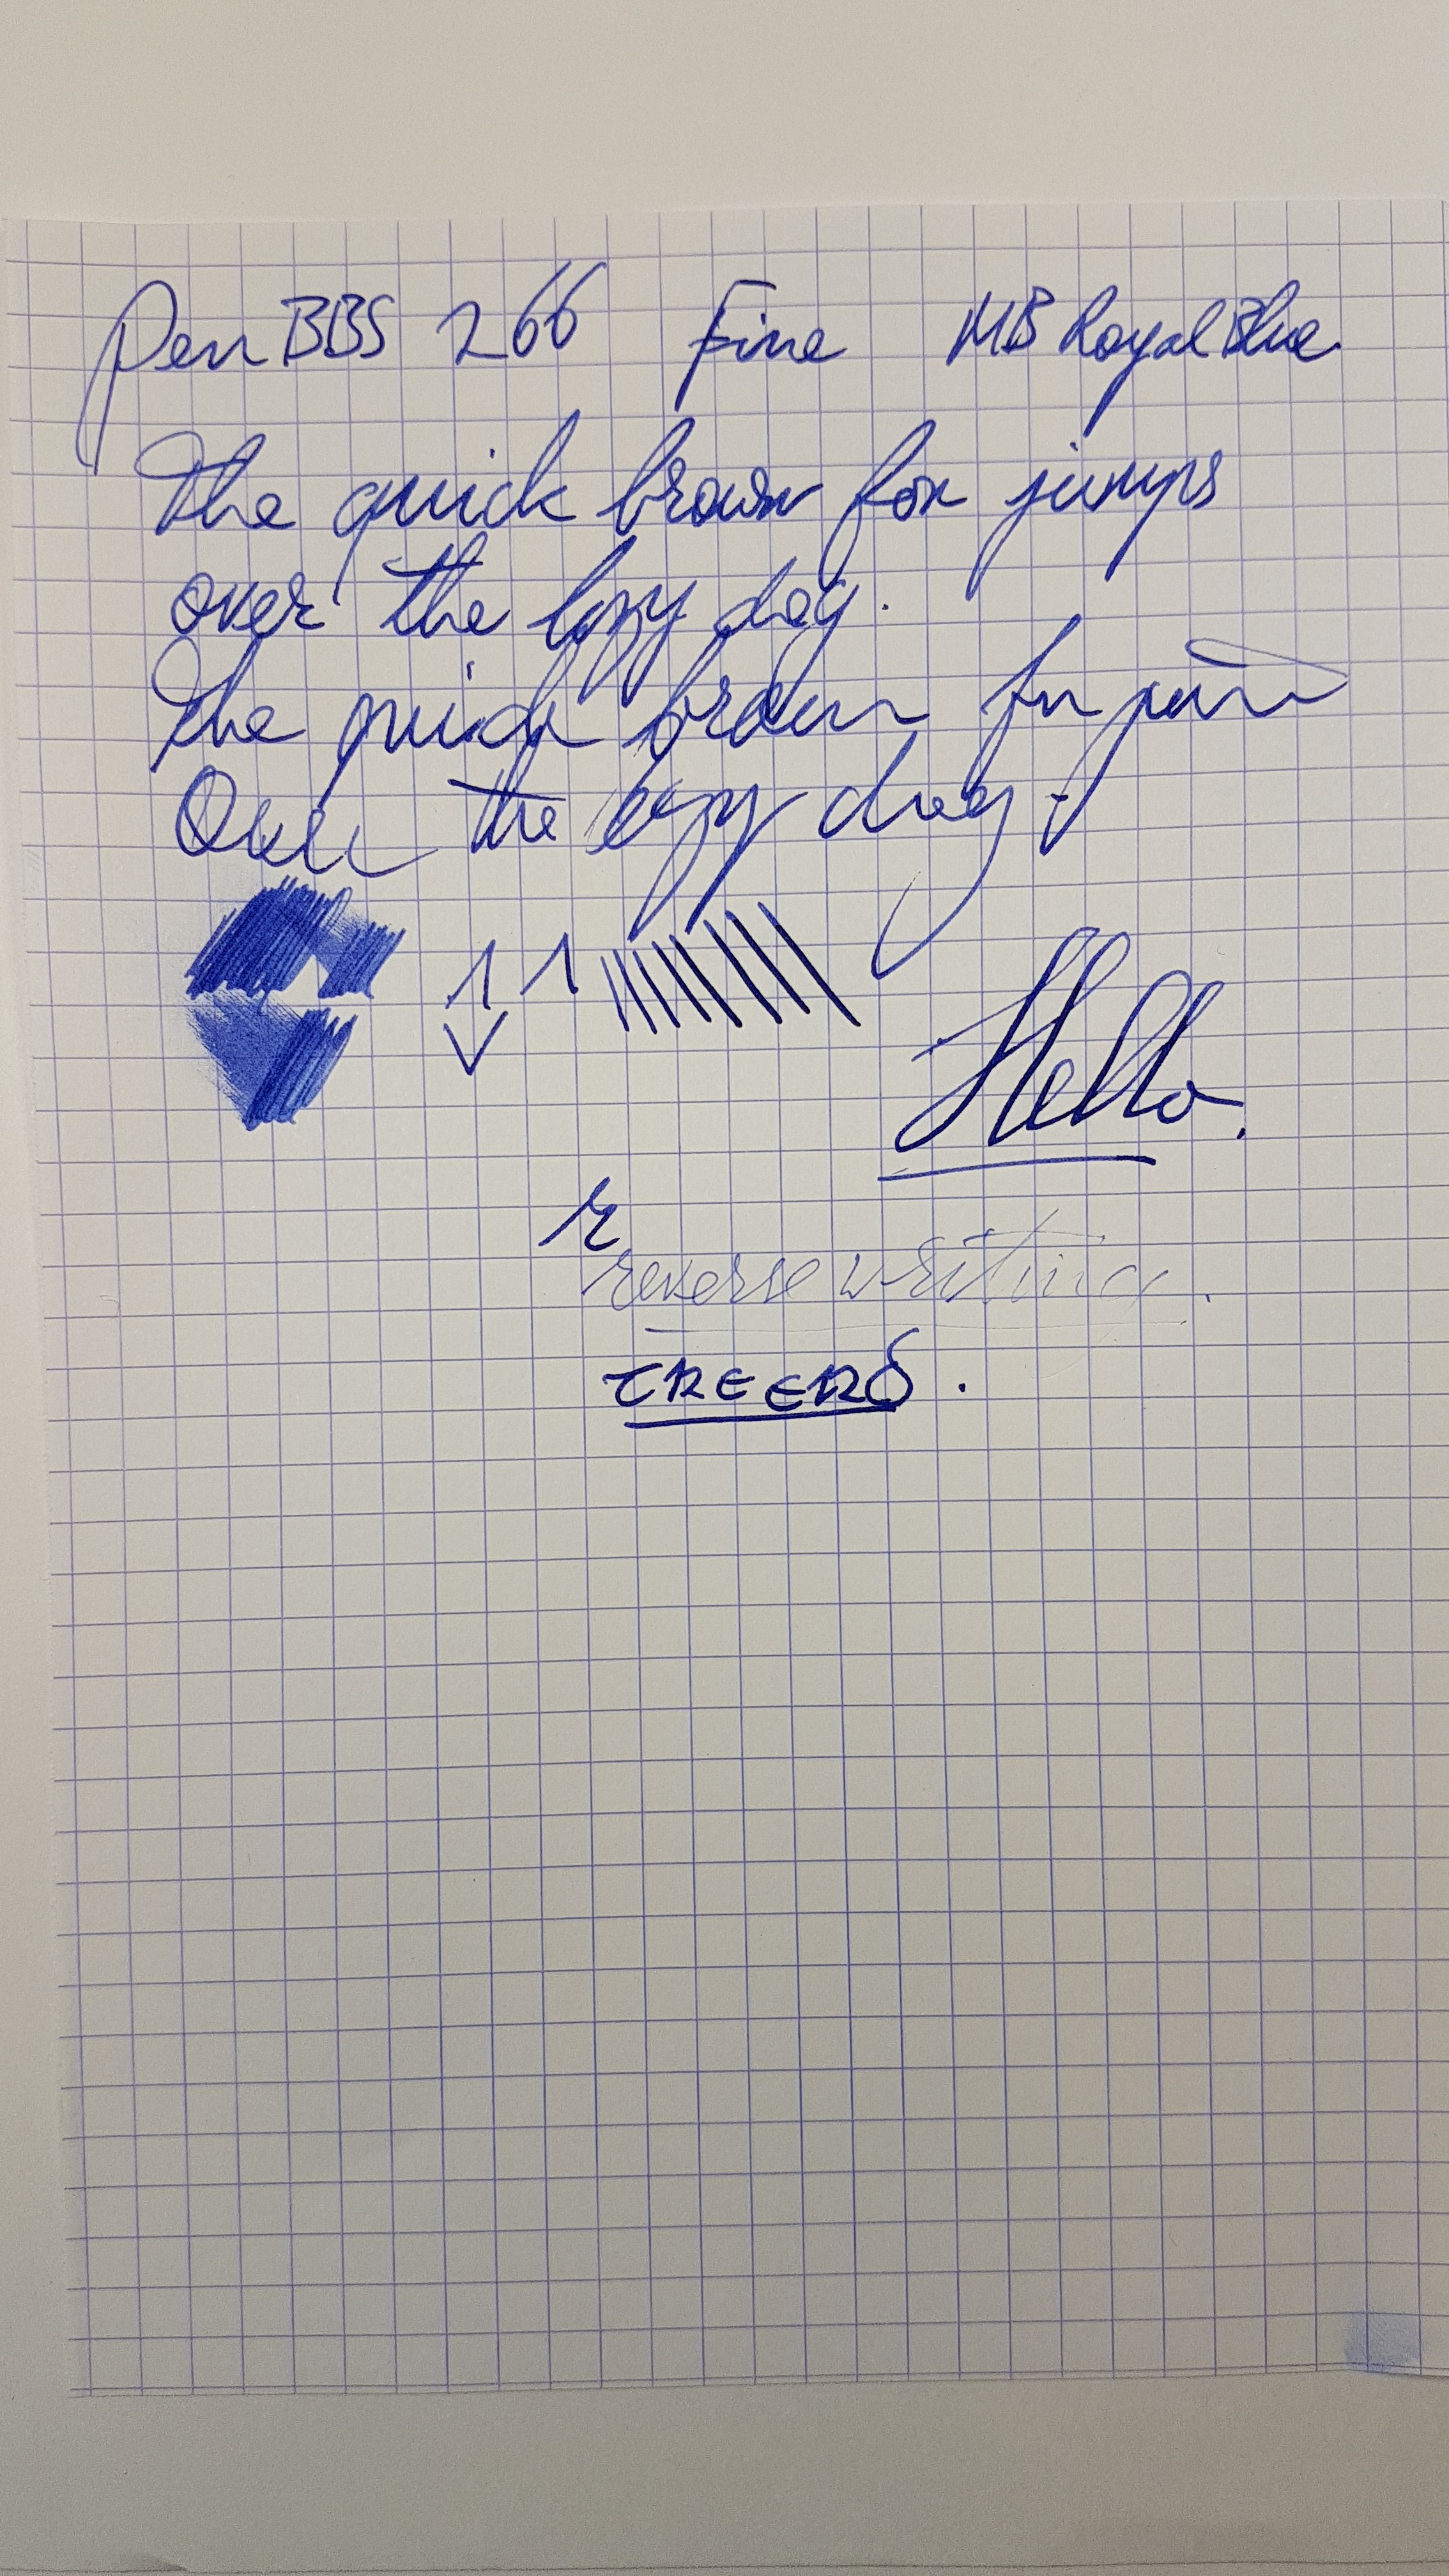 Pen BBS 266 Fine MB Royal Blue
The quick brown fox jumps
over the lazy dog.
The quick brown
Over the lazy dog.
11
Hello.
r
reverse writing.